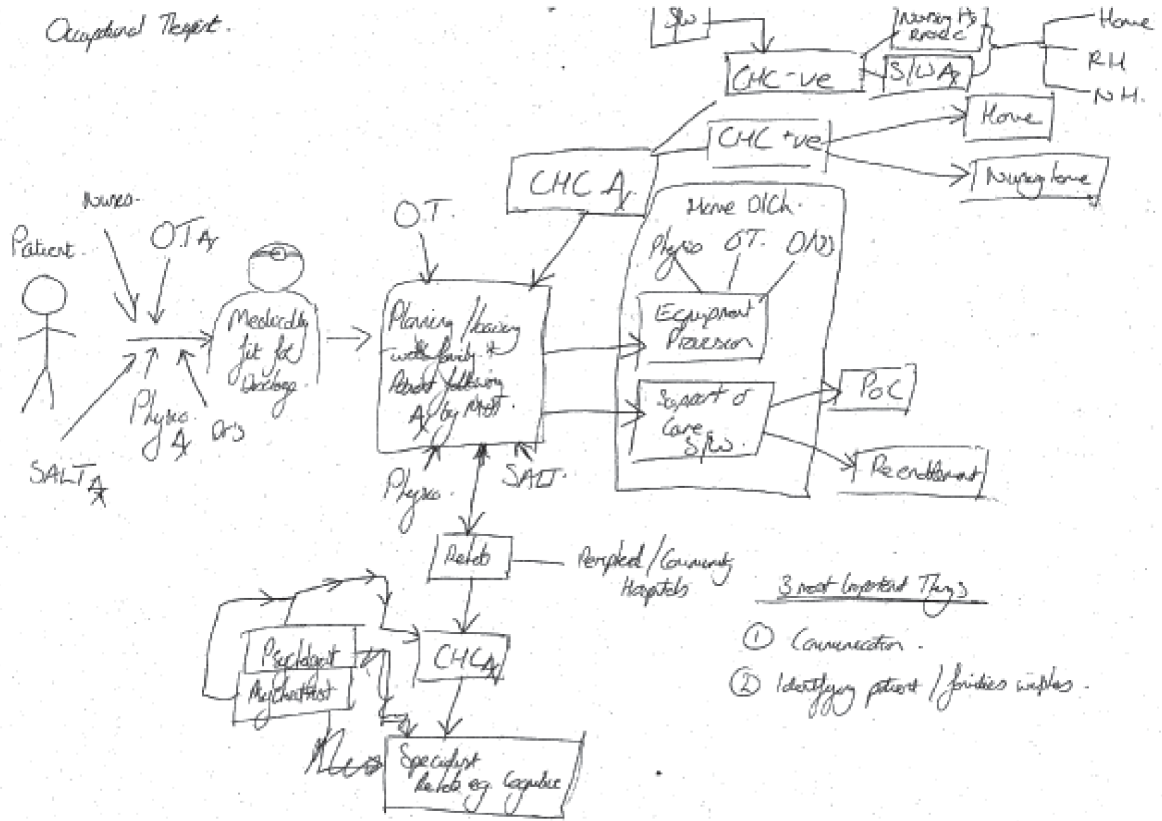 Occupational Therapist.
S/W
CHC -ve
Nursing Ax
S/W Ax
Home
RH
NH.
CHC +ve
Home
Nursing home
CHC Ax
Patient.
Nurses.
OT Ax
SALT Ax
Physio Ax
Dr's
Medically
fit for
Discharge.
O.T.
Planning /
with family +
Patient following
Ax by MDT.
Physio.
SALT.
Home D/Ch.
Physio
OT.
D/N
Equipment
Provision
Support of
Care
S/W.
PoC
Reenablement
Rehab
Peripheral / Community
Hospitals
CHC Ax
Psychologist
Specialist
Rehab eg. Cognitive
3 most Important Things
① Communication.
② Identifying patient / families wishes.